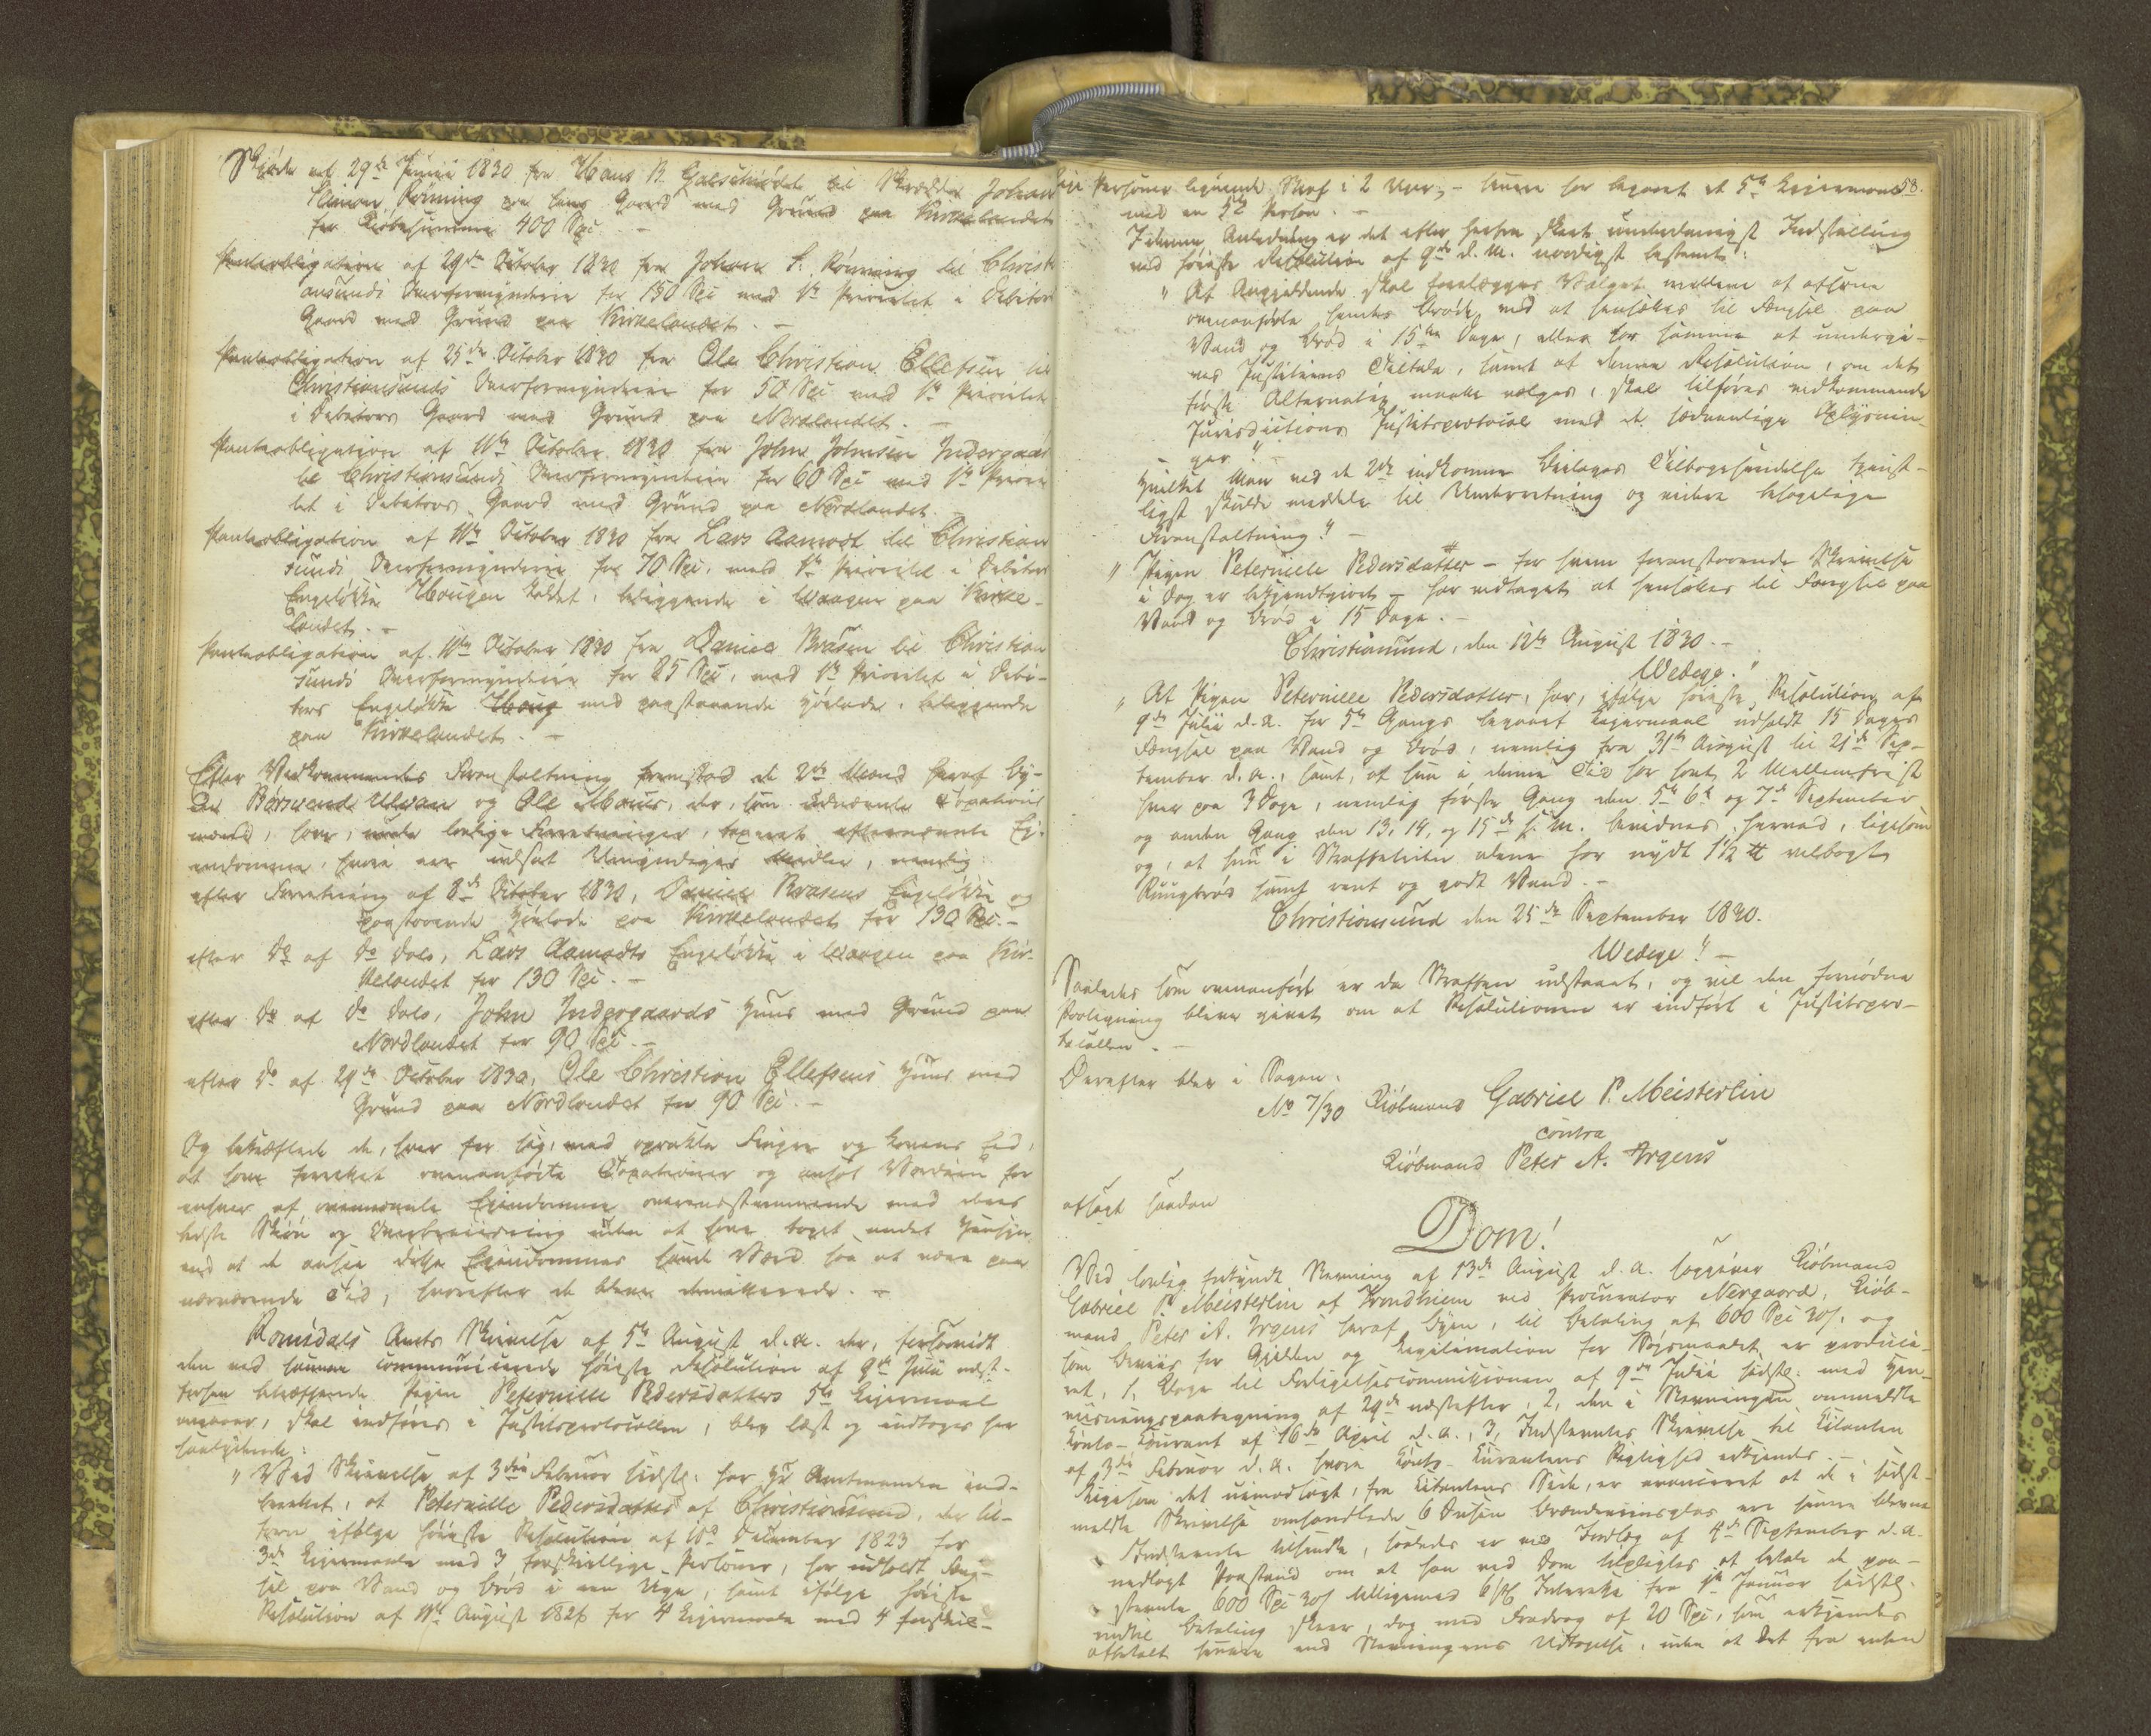 Skjøde af 29de Junii 1830 fra Hans N. Galschiødt til Skrædder Johan
Simon Rönning paa hans Gaard med Grund paa Kirkelandet
for Kiöbesummen 400 Spd. –
Panteobligation af 29de October 1830 fra Johan S. Rönning til Christi-
ansunds Overformynderie for 150 Spd med 1ste Prioritet i Debitors
Gaard med Grund paa Kirkelandet. –
Panteobligation af 25de October 1830 fra Ole Christian Ellefsen til
Christiansunds Overformynderie for 50 Spd med 1ste Prioritet
i Debitors Gaard med Grund paa Nordlandet. –
Panteobligation af 11te October 1830 fra John Johnsen Indergaard
til Christiansunds Overformynderie for 60 Spd med 1ste Priori-
tet i Debitors Gaard med Grund paa Nordlandet. –
Panteobligation af 11te October 1830 fra Lars Aamodt til Christian-
sunds Overformynderie for 70 Spd. med 1ste Prioritet i Debitors
Engeløkke Hougen kaldet, beliggende i Vaagen paa Kirke-
landet. –
Panteobligation af 11te October 1830 fra Daniel Brasen til Christian-
sunds Overformynderie for 85 Spd, med 1ste Prioritet i Debi-
tors Engeløkke Houg med paastaaende Høelade, beliggende
paa Kirkelandet. –
Efter Vedkommendes Foranstaltning fremstod de 2de Mænd heraf By-
en Børzvend Ulgan og Ole Moues, der, som edsvorne Taxations
mænd, have, under lovlige Forretninger, taxeret efternævnte Ej-
endomme, hvori er udsat Umyndiges Midler, nemlig:
efter Forretning af 8de October 1830, Daniel Brasens Engeløkke og
paastaaende Høelade paa Kirkelandet for 130 Spd. –
efter do af do Dato, Lars Aamodts Engeløkke i Vaagen paa Kir-
kelandet for 130 Spd. –
efter do af do Dato, John Indergaards Huus med Grund paa
Nordlandet for 90 Spd. –
efter do af 29de October 1830, Ole Christian Ellefsens Huus med
Grund paa Nordlandet for 90 Spd. –
Og bekræftede de, hver for sig, med oprakte Fingre og Lovens Eed,
at have foretaget ovenanførte Taxationer og ansat Værdien for
enhver af ovennævnte Ejendomme overensstemmende med deres
bedste Skjøn og Overbeviisning uden at have taget andet Hensyn
end at de ansee disse Ejendommes sande Værd saa at være paa
nærværende Tid, hvorefter de bleve dimitterede. –
Romsdals Amts Skrivelse af 5te August d.A. der, forsaavidt
den ved samme communicerede høieste Resolution af 9de Julii næst-
forhen betræffende Pigen Peternille Pedersdatters 5te Leiermaal
angaaer, skal indføres i Justitsprotocollen, blev læst og indtages her
saalydende:
" Ved Skrivelse af 3die Februar sidstl. har Hr Amtmanden ind-
berettet, at Peternille Pedersdatter af Christiansund, der til-
forn ifølge høieste Resolution af 11te December 1823 for
3de Leiermaale med 3 forskjellige Personer, har udholdt Fæng-
sel paa Vand og Brød i een Uge, samt ifølge høieste
Resolution af 11te August 1826 for 4 Leiermaale med 4 forskjel-
lige Personer lignende Straf i 2 Uger, – senere har begaaet et 5te Leiermaal 58.
med en 5te Person. –
I denne Anledning er det efter herfra skeet underdanigst Indstilling
ved høieste Resolution af 9de d.M. naadigst bestemt:
" At Angjeldende skal forelægges Valget mellem at afsone
ovenanførte hendes Brøde ved at hensættes til Fængsel paa
Vand og Brød i 15ten Dage, eller for samme at undergi-
ves Justitiens Tiltale, samt at denne Resolution, om det
første Alternativ maatte vælges, skal tilføres vedkommende
Jurisdictions Justitsprotocol med de sædvanlige Oplysnin-
ger. "
hvilket Man ved de 2de indkomne Bielages Tilbagesendelse tjenst-
ligst skulde meddele til Underretning og videre behagelige
Foranstaltning." –
" Pigen Peternille Pedersdatter – for hvem foranstaaende Skrivelse
i Dag er bekjendtgjort – har vedtaget at hensættes til Fængsel paa
Vand og Brød i 15 Dage. –
Christiansund, den 12te August 1830. –
Wedege."
" At Pigen Peternille Pedersdatter, har, ifølge høieste Resolution af
9de Julii d.A. for 5te Gangs begaaet Leiermaal udholdt 15 Dages
Fængsel paa Vand og Brød, nemlig fra 31te August til 21de Sep-
tember d.A., samt, at hun i denne Tid har havt 2 Mellemfrist
hver paa 3 Dage, nemlig første Gang den 5te 6te og 7de September
og anden Gang den 13, 14, og 15de s.M. bevidnes herved, ligesom
og, at hun i Straffetiden alene har nydt 1 1/2 ℔ velbagt
Rugbrød samt reent og godt Vand. –
Christiansund den 25de September 1830.
Wedege." –
Saaledes som ovenanført er da Straffen udstaaet, og vil den fornødne
Paategning blive givet om at Resolutionen er indført i Justitspro-
tocollen. –
Derefter blev i Sagen:
No 7/30 Kiöbmand Gabriel P. Meisterlin
contra
Kiöbmand Peter A. Irgens
afsagt saadan
Dom!
Ved lovlig forkyndt Stevning af 13de August d.A. sagsøger Kiöbmand
Gabriel P. Meisterlin af Trondhiem ved Procurator Nergaard, Kiöb-
mand Peter A. Irgens heraf Byen, til Betaling af 600 Spd 30 s. og
som Beviis for Gjelden og Legitimation for Søgsmaalet er produce-
ret, 1, Klage til Forligelsescommissionen af 9de Julii sidstl. med Hen-
viisningspaategning af 29de næstefter, 2, den i Stevningen ommeldte
Konto-Courant af 16de April d.A., 3, Indstevntes Skrivelse til Citanten
af 3die Februar d.A. hvori Konto-Courantens Rigtighed erkjendes. –
Ligesom det uimodsagt, fra Citantens Side, er avanceret at de i sidst-
meldte Skrivelse omhandlede 6 Dusin Brændeviinsglas ere senere blevne
Indstevnte tilsendte, saaledes er ved Indlæg af 4de September d.A.
nedlagt Paastand om at han ved Dom tilpligtes at betale de paa-
stevnte 600 Spd 30 s tilligemed 6 pC Interesse fra 1ste Januar sidstl.
indtil Betaling skeer, dog med Fradrag af 20 Spd, som erkjendes
afbetalt senere end Stevningens Udtagelse, uden at det fra anden